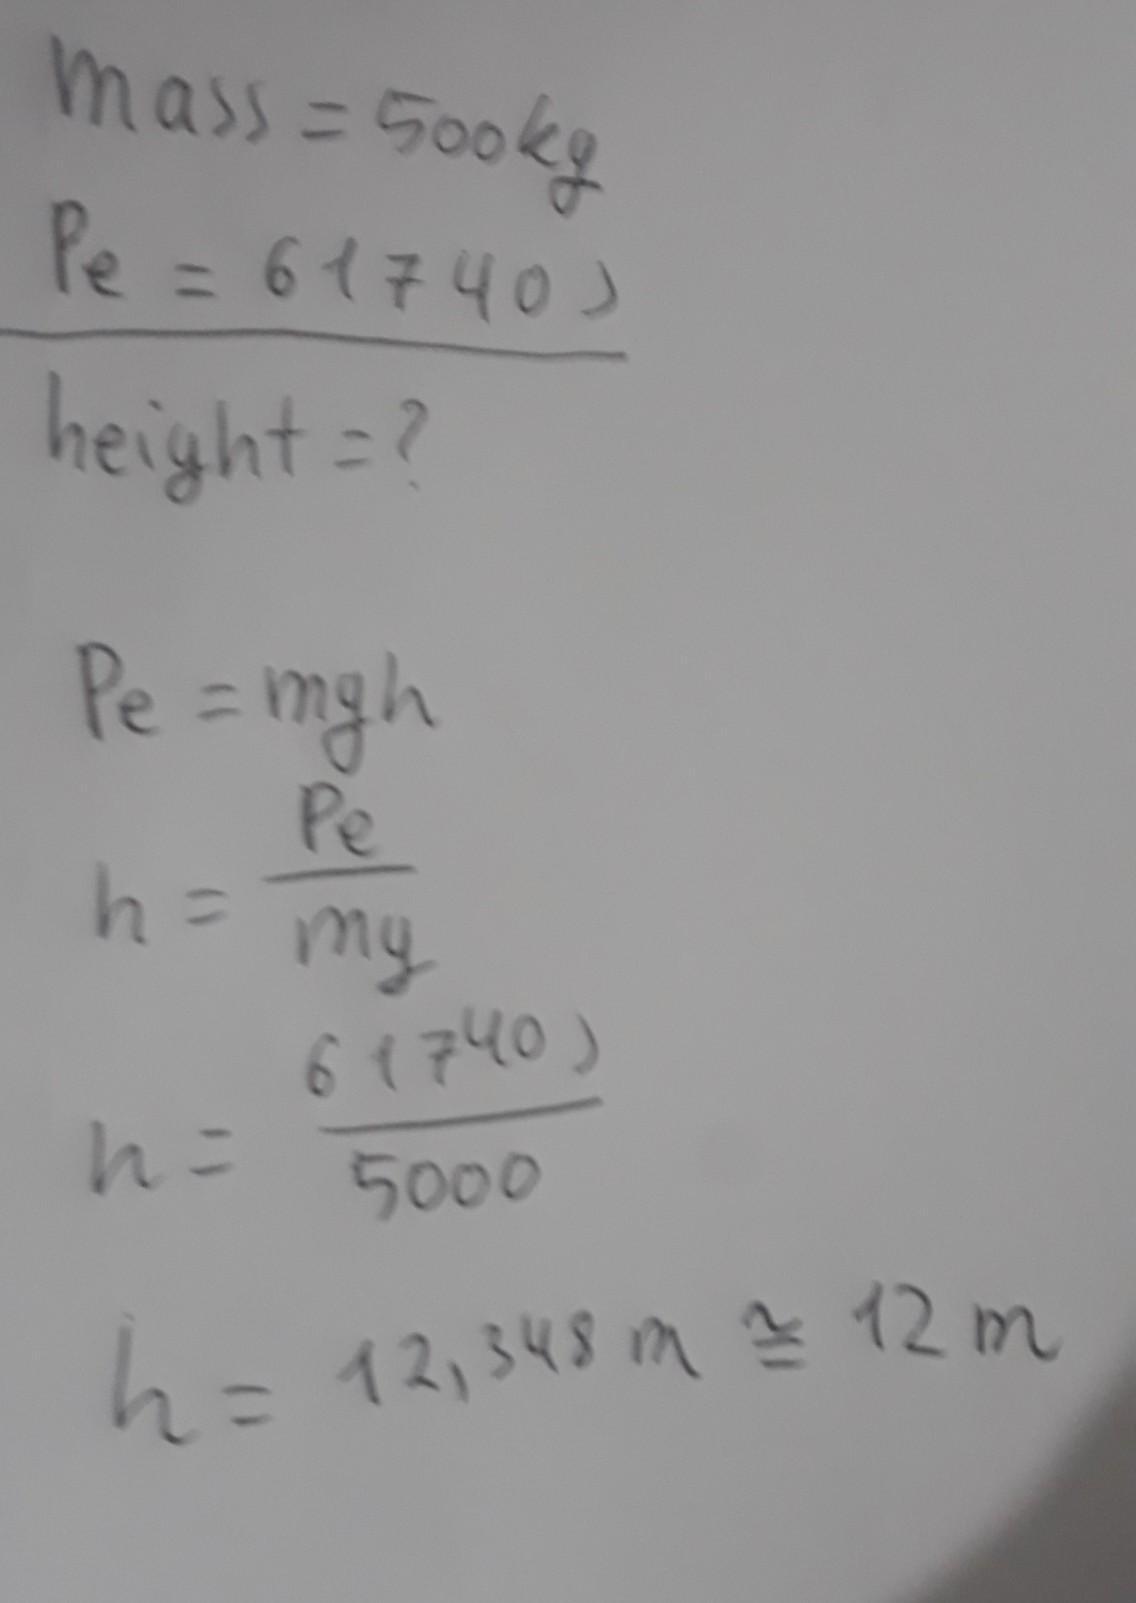 mass = 500kg
Pe = 61740J
height = ?
Pe = mgh
h = Pe / mg
h = 61740J / 5000
h = 12,348 m ≅ 12 m